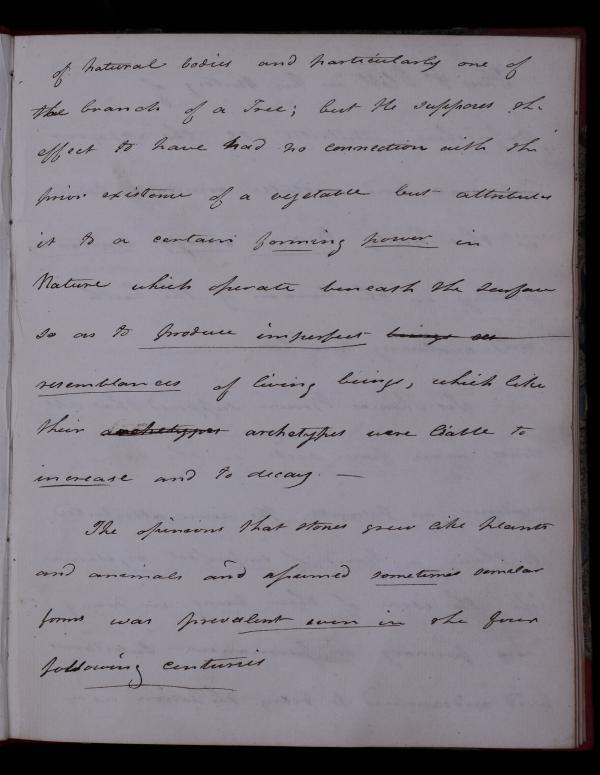 of natural bodies and particularly one of
the branch of a Tree; but He supposes the
effect to have had no connection with the
prior existence of a vegetable but attributes
it to a certain forming power in
Nature which operate beneath the surface
so as to produce imperfect beings as
resemblances of living beings, which like
their archetypes archetypes were liable to
increase and to decay. —
The opinions that stones grew like plants
and animals and assumed sometimes similar
forms was prevalent even in the four
following centuries